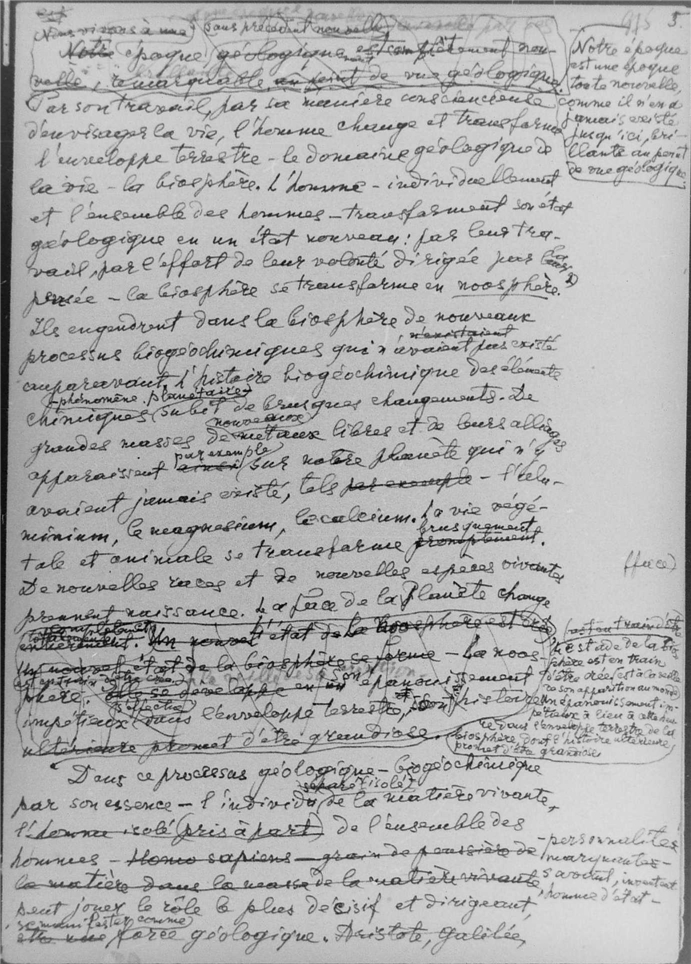 5.
Nous vivons à une sans précédent nouvelle
Notre epoque géologique est complètement nou-
velle, remarquable, au point de vue géologique.
Par son travail, par sa manière consciencieuse
d'envisager la vie, l'homme change et transforme
l'enveloppe terrestre – le domaine géologique de
la vie – la biosphère. L'homme – individuellement
et l'ensemble des hommes – transforment son état
géologique en un état nouveau: par leur tra-
vail, par l'effort de leur volonté dirigée par la
pensée – la biosphère se transforme en noosphère.
Ils engendrent dans la biosphère de nouveaux
n'existaient
processus biogéochimiques qui n'avaient pas existé
auparavant. L'histoire biogéochimique des éléments
phénomène planétaire
chimiques subit de brusques changements. De
nouveaux
grandes masses de métaux libres et de leurs alliages
par exemple
apparaissent ainsi sur notre planète qui n'y
avaient jamais existé, tels par exemple – l'alu-
minium, le magnesium, le calcium. La vie végé-
brusquement
tale et animale se transforme promptement.
De nouvelles races et de nouvelles espèces vivantes
prennent naissance. La face de la Planète change
entièrement. Un nouvel état de la biosphère est créé
Un nouvel état de la biosphère se forme – La noos-
phère. se developpe en un épanouissement
impétueux dans l'enveloppe terrestre, et son histoire
ultérieure promet d'être grandiose.
Dans ce processus géologique – biogéochimique
séparé (isolé)
par son essence – l'individu de la matière vivante,
l'homme isolé (pris à part) de l'ensemble des
hommes – Homo sapiens – grain de poussière de
la matière dans la masse de la matière vivante,
peut jouer le rôle le plus decisif et dirigeant,
se manifester comme
être une force géologique. Aristote, Galilée,
Notre epoque
est une époque
toute nouvelle,
comme il n'en a
jamais existé
jusqu'ici, bri-
llante au point
de vue géologique
(face)
stade de la bios-
phère est en train
d'être crée, est à la veille
de son apparition au monde
Un épanouissement im-
pétueux a lieu
dans l'enveloppe terrestre de la
biosphère dont l'histoire ultérieure
promet d'être grandiose
– personnalités
marquantes –
savant, inventeur
homme d'état –